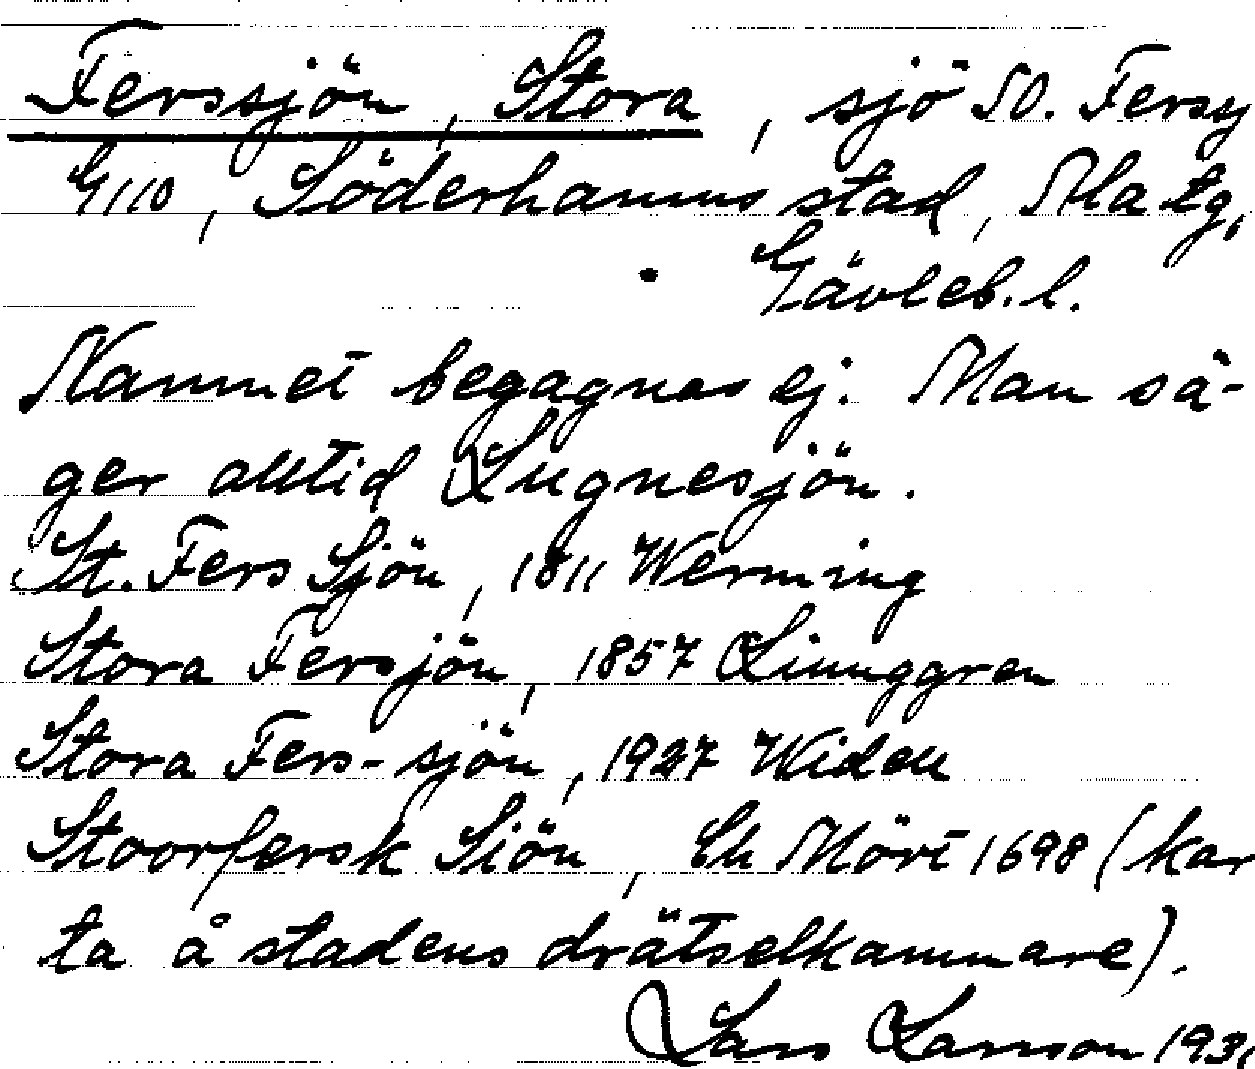 Ferssjön, Stora, sjö SO. Fersy
G110, Söderhamns stad, Ala tg,
Gävleb. l.
Namnet begagnas ej. Man sä-
ger alltid Lugnesjön.
St. Fers Sjön, 1811 Werming
Stora Fersjön, 1857 Ljunggren
Stora Fers-sjön, 1927 Widell
Stoorfersk Siön, Ch Mört 1698 (kar
ta å stadens drätselkammare).
Lars Larsson 193